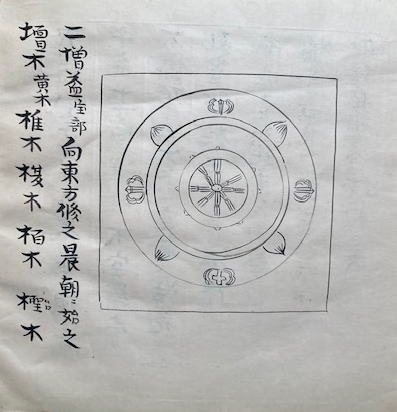 二 増益 宝部 向東方修之晨朝ニ始之
壇木 黄木 椎木 桜木 栢木 檉木